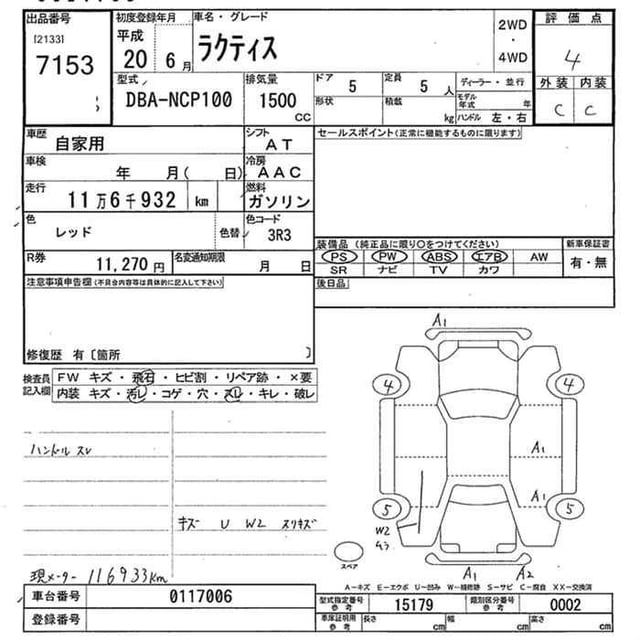 出品番号 初度登録年月 車名・グレード 2WD・4WD 評価点
[2133] 平成 ラクティス 4
7153 20年 6月 外装 内装
型式 排気量 ドア 5 定員 5人 ディーラー・並行 C C
DBA-NCP100 1500 CC 形状 積載 kg モデル年式 年
ハンドル 左・右
車歴 自家用 シフト AT セールスポイント(正常に機能するものに限ります)
車検 年 月( 日) 冷房 AAC
走行 11万6千932 km 燃料 ガソリン
色 レッド 色替 色コード 3R3
装備品(純正品に限り○をつけてください) 新車保証書
R券 11,270円 名変通知期限 月 日 PS PW ABS エアB AW 有・無
SR ナビ TV カワ
注意事項申告欄(不具合内容等は具体的に記入して下さい) 後日品
修復歴 有〔箇所 〕
検査員記入欄 FW キズ・飛石・ヒビ割・リペア跡・×要
内装 キズ・汚レ・コゲ・穴・スレ・キレ・破レ
A1
4 4
ハンドルスレ
A1
A1
5 5
キズ U W2 スリキズ
W2
スペア
A1 A2
現メーター 116933km
A-キズ E-エクボ U-凹み W-補修跡 S-サビ C-腐食 XX-交換済
車台番号 0117006 型式指定番号 参考 15179 類別区分番号 参考 0002
登録番号 車庫証明用 参考 長さ cm 幅 cm 高さ cm